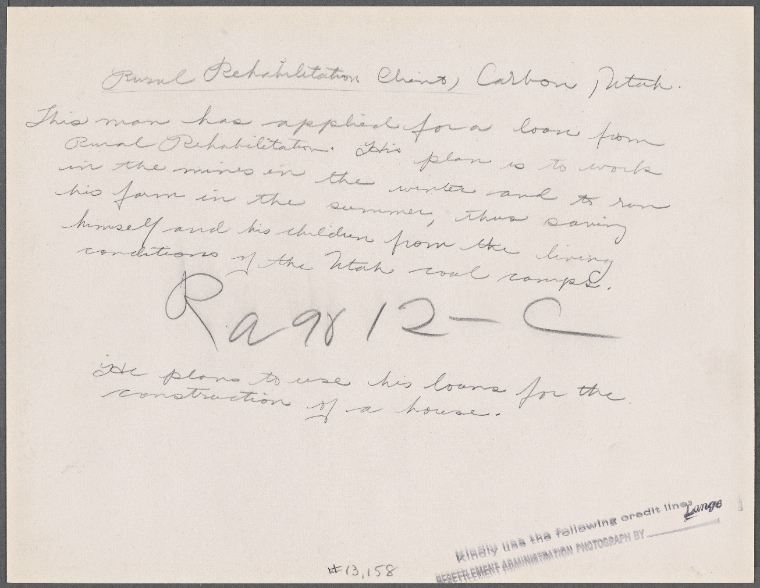 Rural Rehabilitation Client, Carbon, Utah.
This man has applied for a loan from
Rural Rehabilitation. His plan is to work
in the mines in the winter and to run
his farm in the summer, thus saving
himself and his children from the living
conditions of the Utah coal camps.
Ra 98 12-C
He plans to use his loans for the
construction of a house.
Kindly use the following credit line:
RESETTLEMENT ADMINISTRATION PHOTOGRAPH BY Lange
#13,158